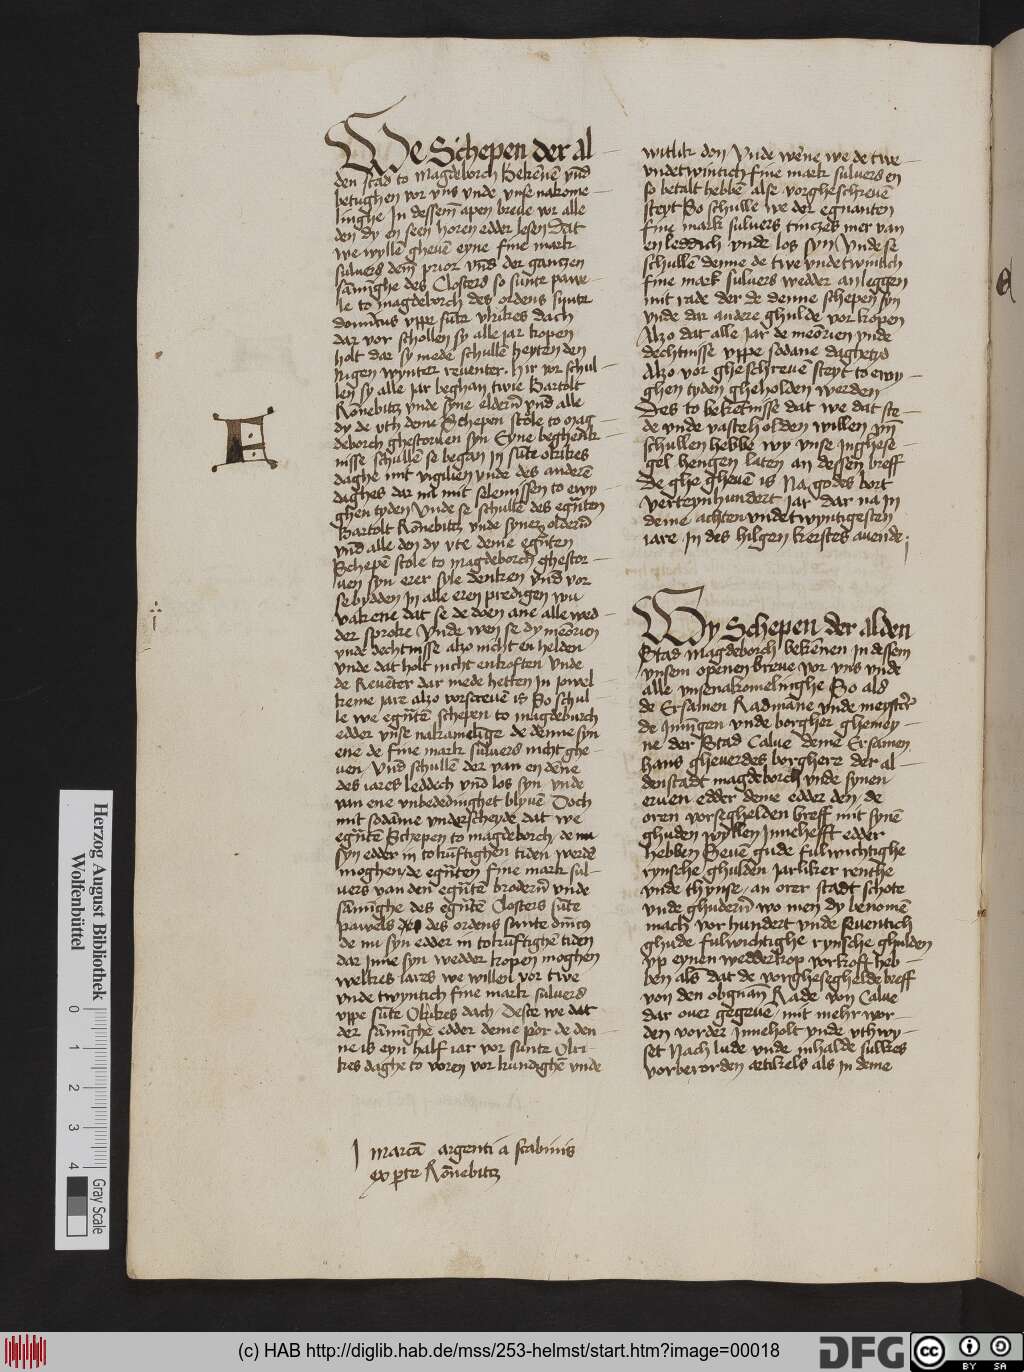 We Schepen der al
den stad to magdeborch Bekēnē vnd
betughen vor vns vnde vnse nakome
linghe In dessem apen breue vor alle
den dy en seen horen edder lesen Dat
we wyllē gheuē eyne fine mark
suluers dem prior vnd der gantzen
samīghe des Closters so sunte pawe
le to magdeborch des ordens sunte
domīcus vppe sūte vlrikes dach
dar vor schollen sy alle jar kopen
holt dar sy mede schullē heyten den
nigen wynter reuenter. hir vor schul
len sy alle jar beghan twie Bartolt
Rōnebitz vnde syne elderñ vnd alle
dy de vth deme Schepen stole to mag
deborch ghestoruen syn Eyne beghenk
nisse schullē se began in sūte olrikes
daghe mit vigilien vnde des anderē
daghes dar na mit selemissen to ewy
ghen tyden Vnde se schullē des egn̄ten
Bartolt Rōnebitz vnde syner olderñ
vnd alle den dy vte deme egn̄ten
Schepē stole to magdeborch ghestor
uen syn erer syle denken vnd vor
se bydden In alle eren predigen wu
vakene dat se de doen ane alle wed
der sproke Vnde wen se dy memorien
vnde dechtnisse alzo nicht en helden
vnde dat holt nicht enkoften Vnde
de Reuēter dar mede hetten In jowel
keme jare alzo vorscreuē is So schul
le we egn̄tē schepen to magdeburch
edder vnse nakamelīge de denne syn
ene de fine mark suluers nicht ghe
uen Vnd schullē der van en dēne
des iares leddech vnd los syn vnde
van ene vnbededinghet blyuē Doch
mit sodāme vnderscheyde dat we
egn̄tē Schepen to magdeborch de nu
syn edder in tokūftighen tiden werdē
moghen de egn̄ten fine mark sul
uers van den egn̄tē broderñ vnde
samīghe des egn̄tē Closters sūte
pawels des ordens sunte dm̄cus
de nu syn edder in tokūftighē tiden
dar inne syn wedder kopen moghen
welkes iares we willen vor twe
vnde twyntich fine mark suluers
vppe sūte Olrikes dach Deste we dat
der samīghe edder deme p̄or de den
ne is eyn half iar vor sunte Olri
kes daghe to voren vor kundighē vnde
I marcā argenti a scabinis
ex p̄te Rōnebitz
witlik don Vnde wēne we de twe
vndetwintich fine mark suluers en
so betalt hebbē alse vorgheschreuē
steyt So schulle we der egnanten
fine mark suluers tinczes mer van
en leddich vnde los syn Vnde se
schullē denne de twe vndetwintich
fine mark suluers wedder anleggen
mit rade der de denne schepen syn
vnde dar andere ghulde vor kopen
Alzo dat alle jar de memōrien vnde
dechtnisse vppe sodane daghetyd
Alzo vor gheschreuē steyt to ewy
ghen tyden gheholden werden
Des to bekētnisse dat we dat ste
de vnde vasteholden willen vn̄
schullen hebbe wy vnse Inghese
gel hengen laten an dessen breff
De ghegheuē is Na godes bort
verteynhundert jar dar na In
deme achtenvndetwyntigesten
iare In des hilgen kerstes auende
Wy Schepen der alden
Stad magdeborch bekēnen in dessem
vnsem openen breue vor vns vnde
alle vnsenakomelinghe So als
de Ersamen Radmāne vnde meystere
de Innīgen vnde borgher ghemey
ne der Stad Calue deme Ersamen
hans gheuerdes borghere der al
denstadt magdeborch vnde synen
eruen edder deme edder den de
oren vorseghelden breff mit synē
ghuden wyllen Innehefft edder
hebben Seuē gude fulwichtighe
rynsche ghulden jarliker renthe
vnde thynse an orer stadt schote
vnde ghuderñ wo men dy benomē
mach vor hundert vnde seuentich
ghude fulwichtighe rynsche ghulden
vp eynen wedderkop vorkofft heb
ben als dat de vorghesegheldebreff
von den obgnan̄ Rade von Calue
dar ouer gegeue mit mehr wor
den vorder Inneholt vnde vthwy
set Nach lude vnde inhalde sulkes
vorberorden artikels als in deme
Herzog August Bibliothek
Wolfenbüttel
0 1 2 3 4
Gray Scale
(c) HAB http://diglib.hab.de/mss/253-helmst/start.htm?image=00018
DFG
cc
BY SA